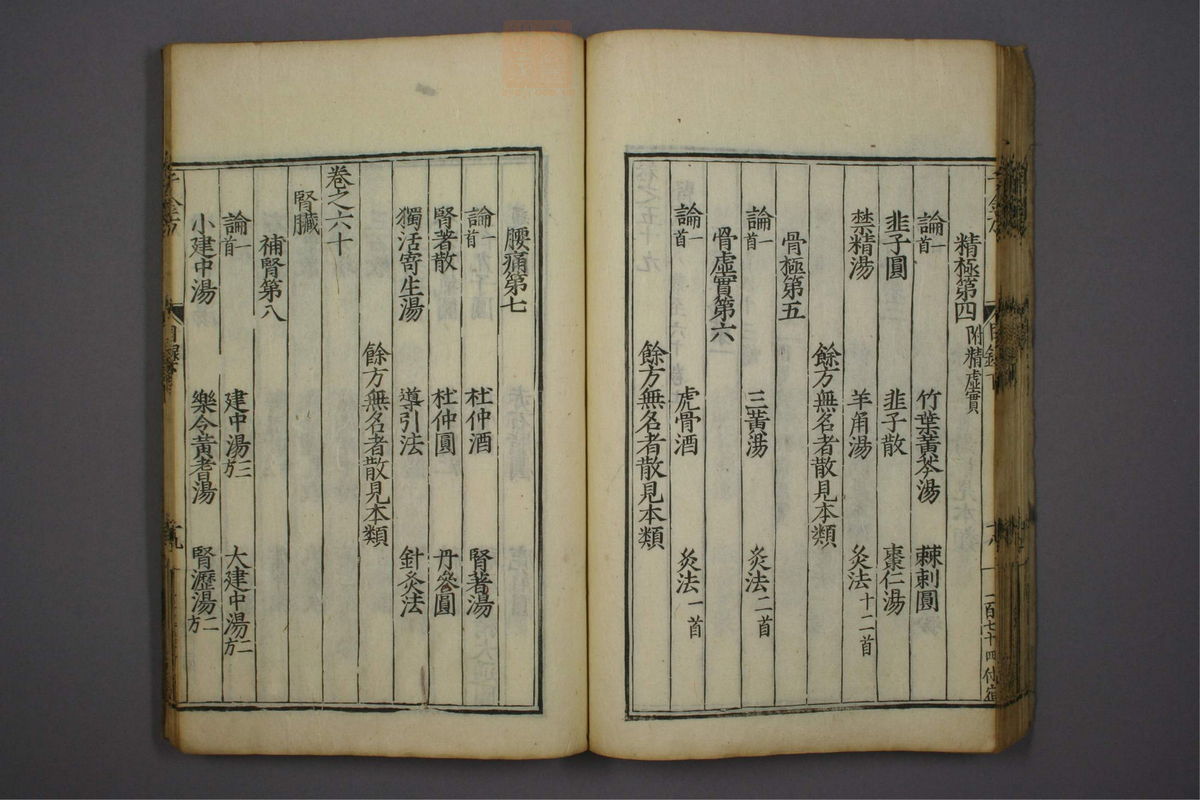 精極第四 附精虛實
論一首 竹葉黃芩湯 棘刺圓
韭子圓 韭子散 棗仁湯
禁精湯 羊角湯 灸法十二首
餘方無名者散見本類
骨極第五
論一首 三黃湯 灸法二首
骨虛實第六
論一首 虎骨酒 灸法一首
餘方無名者散見本類
腰痛第七
論一首 杜仲酒 腎著湯
腎著散 杜仲圓 丹參圓
獨活寄生湯 導引法 針灸法
餘方無名者散見本類
卷之六十
腎臟
補腎第八
論一首 建中湯三方 大建中湯二方
小建中湯 樂令黃耆湯 腎瀝湯二方